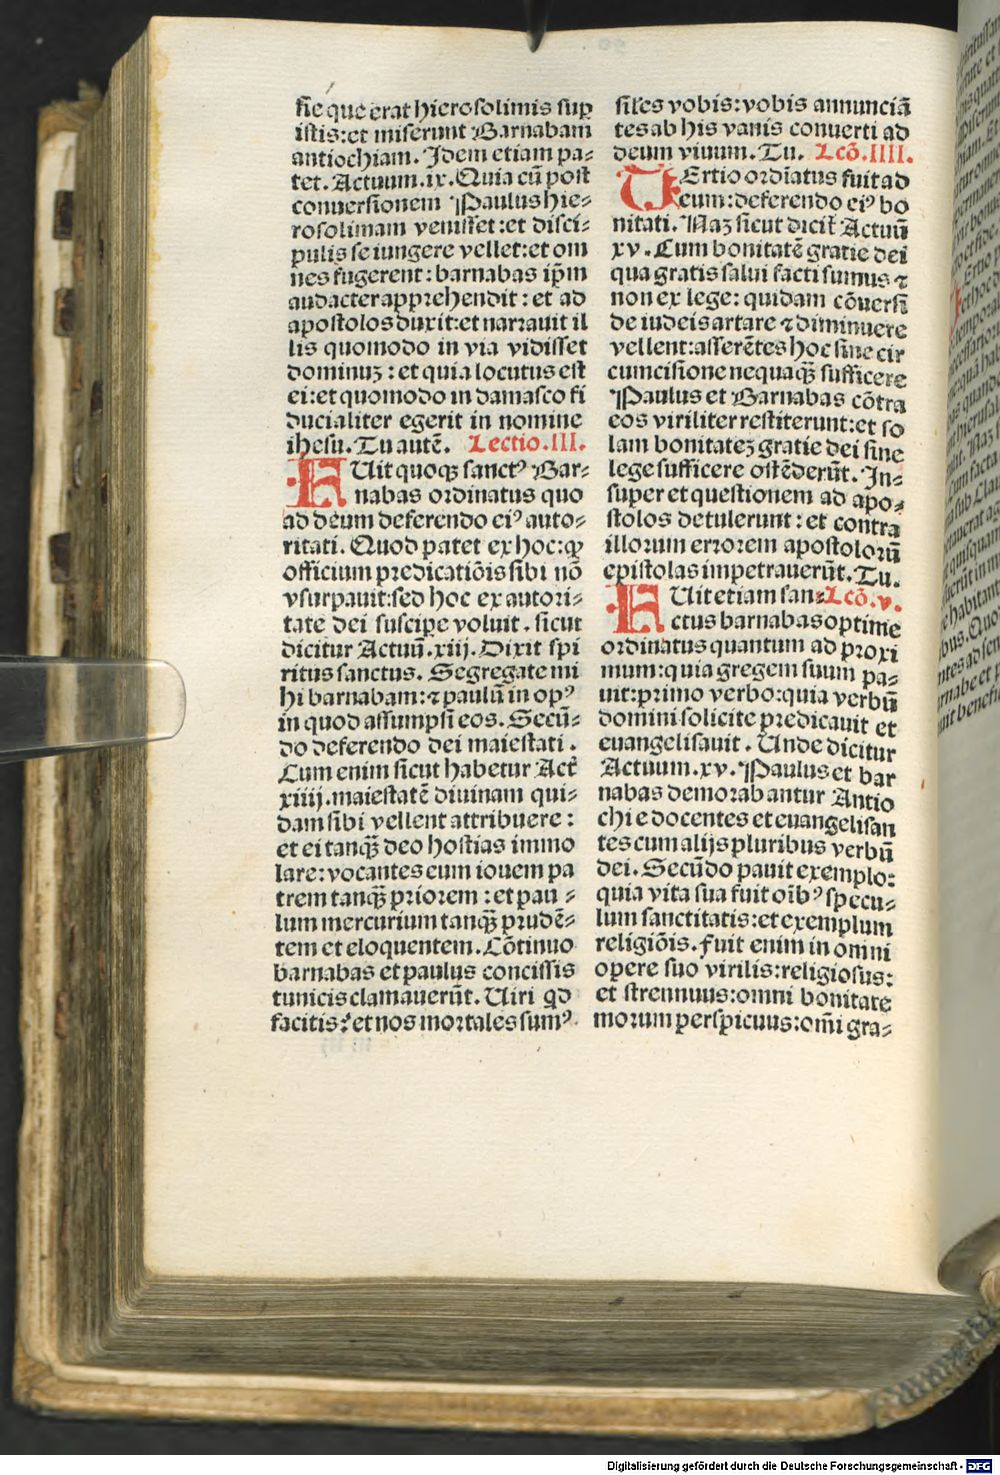 sie que erat hierosolimis sup̲
istis:et miserunt Barnabam
antiochiam. Idem etiam pa⸗
tet. Actuum.ix. Quia cū post
conuersionem Paulus hie⸗
rosolimam venisset:et disci⸗
pulis se iungere vellet:et om
nes fugerent: barnabas ip̄m
audacter apprehendit: et ad
apostolos duxit:et narrauit il
lis quomodo in via vidisset
dominuꝫ: et quia locutus est
ei:et quomodo in damasco fi
ducialiter egerit in nomine
ihesu. Tu autē. Lectio.III.
FUit quoqꝫ sanctꝰ Bar⸗
nabas ordinatus quo
ad deum deferendo eiꝰ auto⸗
ritati. Quod patet ex hoc:ꝙ
officium predicatiōis sibi nō
vsurpauit:sed hoc ex autori⸗
tate dei suscipe voluit. sicut
dicitur Actuū.xiij. Dixit spi
ritus sanctus. Segregate mi
hi barnabam:⁊ paulū in opꝰ
in quod assumpsi eos. Secū⸗
do deferendo dei maiestati.
Cum enim sicut habetur Act̄
xiiij.maiestatē diuinam qui⸗
dam sibi vellent attribuere:
et ei tanqꝫ̄ deo hostias immo
lare: vocantes eum iouem pa
trem tanqꝫ̄ priorem: et pau⸗
lum mercurium tanqꝫ̄ prudē⸗
tem et eloquentem. Cōtinuo
barnabas et paulus concissis
tunicis clamauerūt. Uiri qd
facitis? et nos mortales sumꝰ
siles vobis: vobis annunciā
tes ab his vanis conuerti ad
deum viuum. Tu. Lcō.IIII.
TErtio ordīatus fuit ad
eum: deferendo eiꝰ bo
nitati. Naꝫ sicut dicit̄ Actuū
xv. Cum bonitatē gratie dei
qua gratis salui facti sumus ⁊
non ex lege: quidam cōuersi
de iudeis artare ⁊ diminuere
vellent:asserētes hoc sine cir
cumcisione nequaqꝫ̄ sufficere
Paulus et Barnabas cōtra
eos viriliter restiterunt:et so
lam bonitateꝫ gratie dei sine
lege sufficere ostēderūt. In⸗
super et questionem ad apo⸗
stolos detulerunt: et contra
illorum errorem apostolorū
epistolas impetrauerūt. Tu.
FUit etiam san⸗ Lcō.v.
ctus barnabas optime
ordinatus quantum ad proxi
mum: quia gregem suum pa⸗
uit:primo verbo:quia verbū
domini solicite predicauit et
euangelisauit. Unde dicitur
Actuum.xv. Paulus et bar
nabas demorabantur Antio
chie docentes et euangelisan
tes cum alijs pluribus verbū
dei. Secūdo pauit exemplo:
quia vita sua fuit oībꝰ specu⸗
lum sanctitatis:et exemplum
religiōis. fuit enim in omni
opere suo virilis:religiosus:
et strennuus:omni bonitate
morum perspicuus:om̄i gra⸗
Digitalisierung gefördert durch die Deutsche Forschungsgemeinschaft - DFG